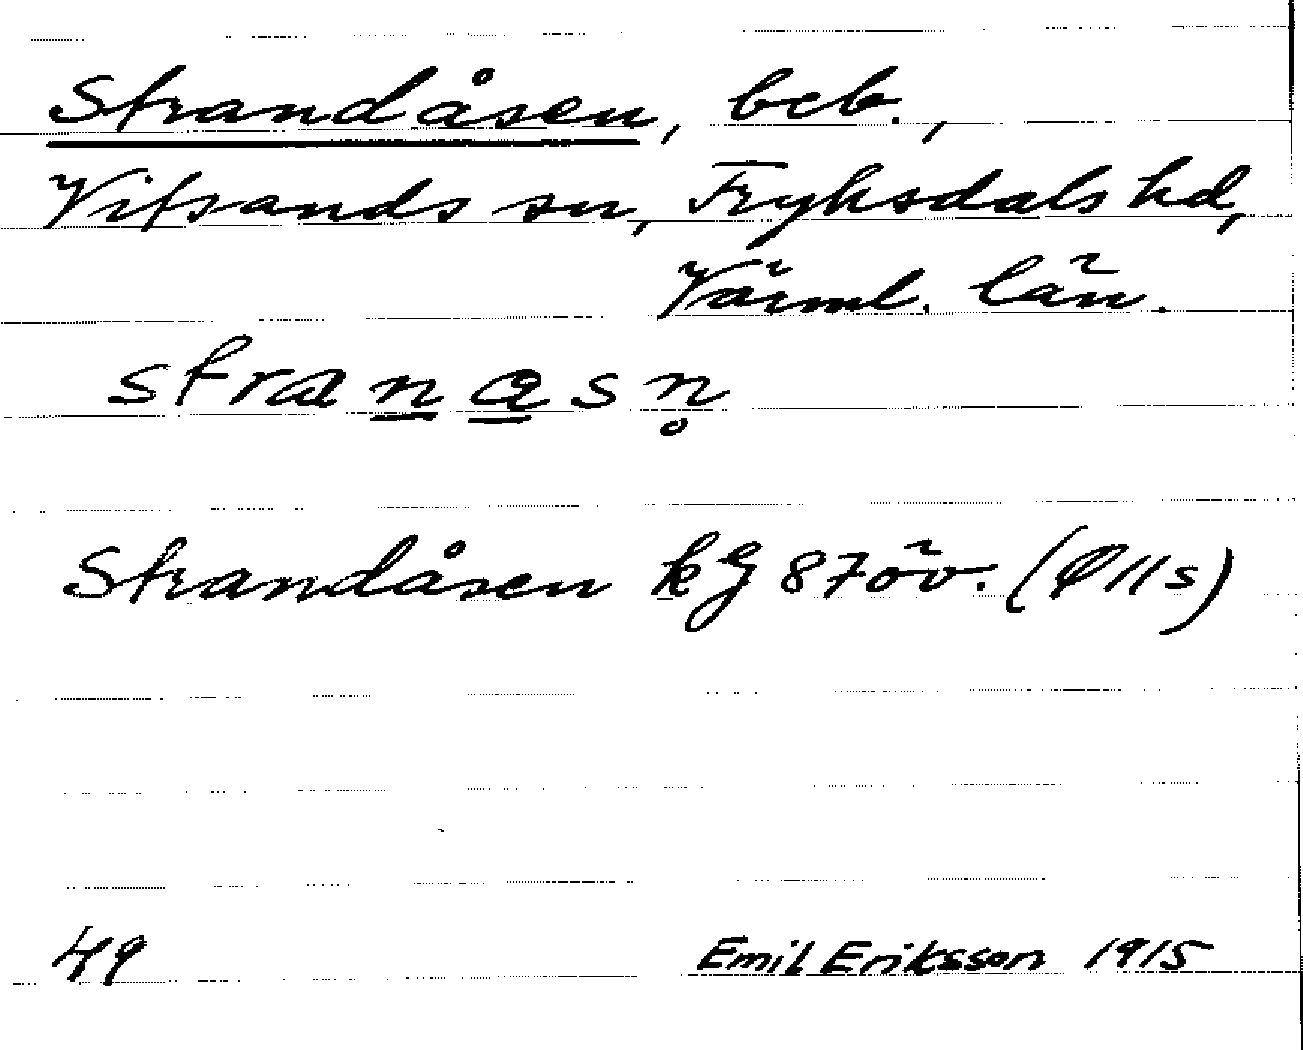 Strandåsen, beb.,
Vitsands sn, Fryksdals hd,
Värml. län.
strana̲sn̥
Strandåsen kg 87 öv.
49
Emil Eriksson 1915